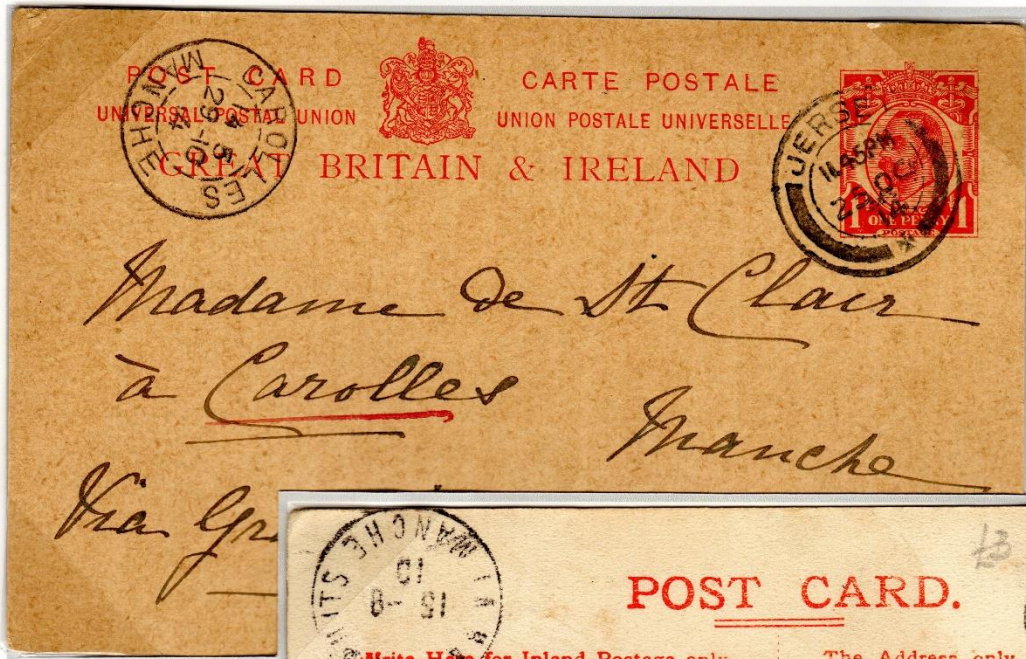 POST CARD CARTE POSTALE
UNIVERSAL POSTAL UNION UNION POSTALE UNIVERSELLE
GREAT BRITAIN & IRELAND
CAROLLES
MANCHE
29-10
JERSEY
11.45PM
OC
14
1 ONE PENNY 1
POSTAGE
Madame de St Clair
à Carolles
Manche
Via
MANCHE
15 -8
10
£3
POST CARD.
Write Here for Inland Postage only The Address only